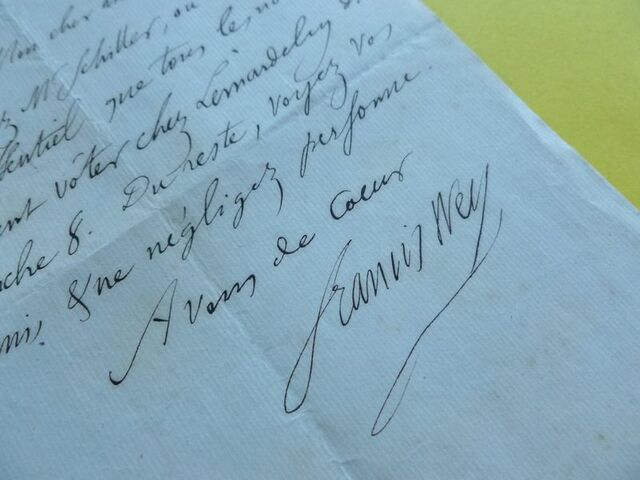 Mon cher
M Schiller, ou
que tous les
vôter chez Lemardeley
8. Du reste, voyez vos
& ne négligez personne.
A vous de coeur
Francis Wey